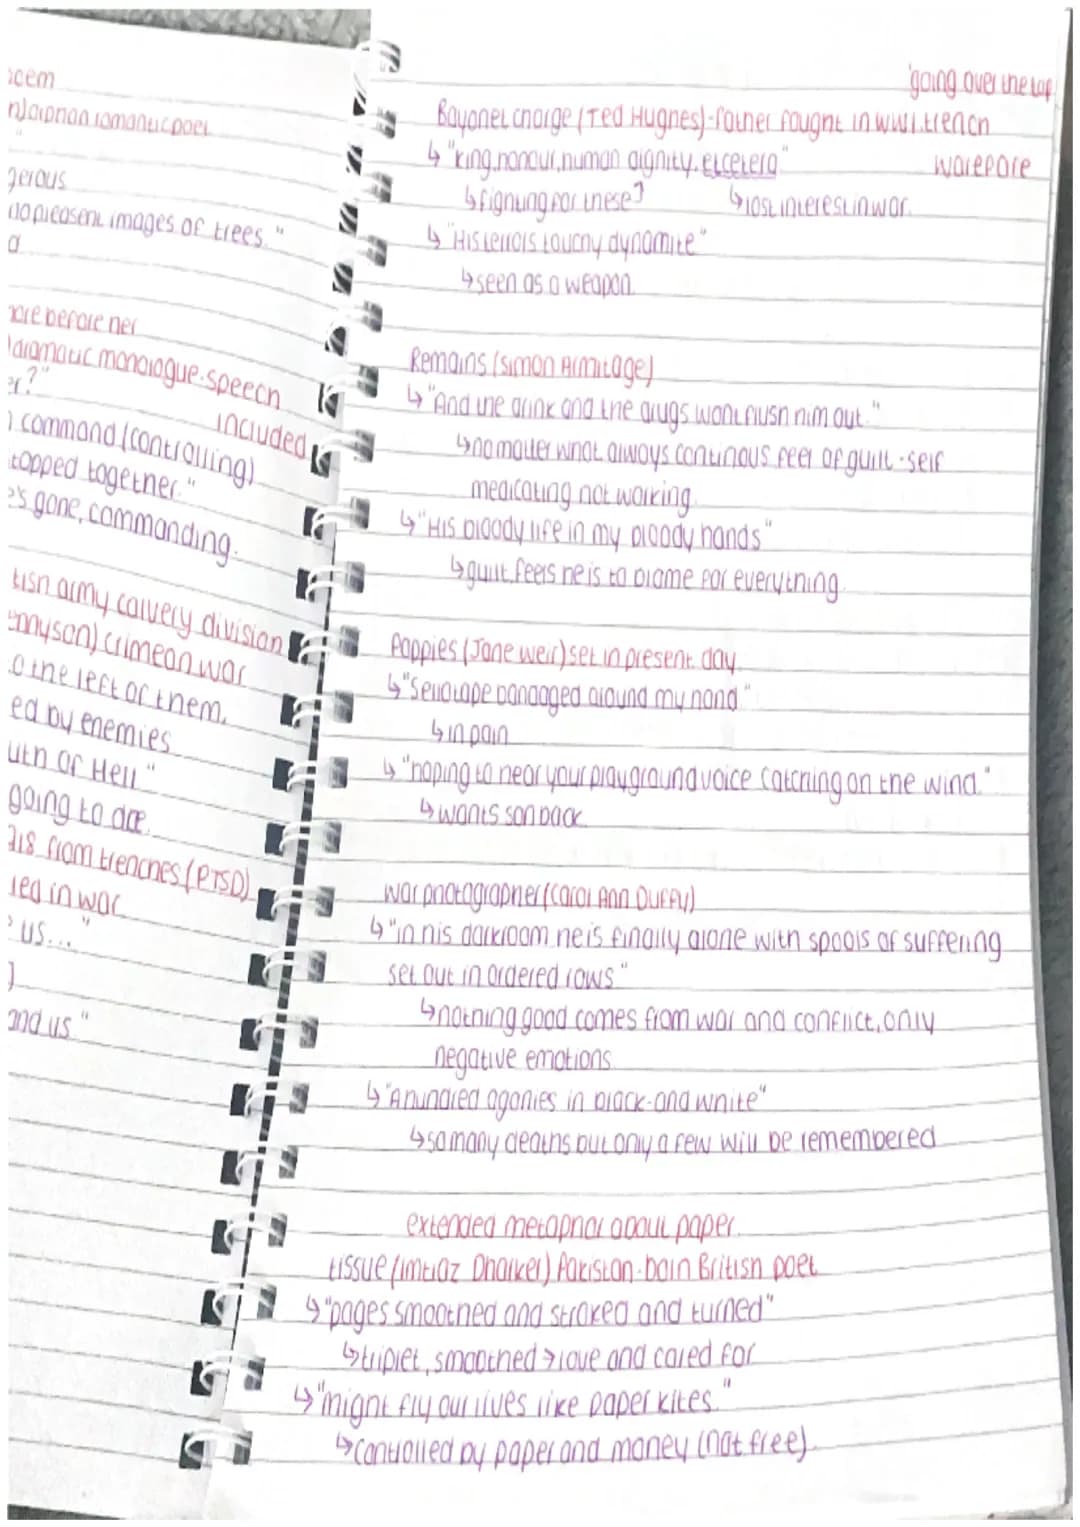 orphan romantic poet
gerous
pleasent images of trees."
before her
dramatic monologue-speech
included
command (controlling)
topped together."
e's gone, commanding.
tish army calvery division
ennyson) crimean war
o the left of them,
ed by enemies
uth of Hell"
going to die.
from trenches (PTSD)
ied in war
us..."
and us."
'going over the top'
Bayonet charge (Ted Hughes)-father fought in wwI.trench
warefare
↳ "king,honour,human dignity, etcetera"
↳ fighting for these? ↳ lost interest in war.
↳ "His terrors touchy dynamite"
↳ seen as a weapon.
Remains (Simon Armitage)
↳ "And the drink and the drugs wont flush him out."
↳ no matter what always continous feel of guilt-self
medicating not working.
↳ "His bloody life in my bloody hands"
↳ guilt, feels he is to blame for everything.
Poppies (Jane weir) set in present day.
↳ "Sellotape bandaged around my hand."
↳ in pain
↳ "hoping to hear your playground voice catching on the wind."
↳ wants son back
war photographer (Carol Ann Duffy)
↳ "in his darkroom he is finally alone with spools of suffering
set out in ordered rows"
↳ nothing good comes from war and conflict, only
negative emotions.
↳ "A hundred agonies in black-and white"
↳ so many deaths but only a few will be remembered
extended metaphor about paper.
tissue (imtiaz Dharker) Pakistan-born British poet
↳ "pages smoothed and stroked and turned"
↳ triplet, smoothed → love and cared for
↳ "might fly our lives like paper kites."
↳ controlled by paper and money (not free).